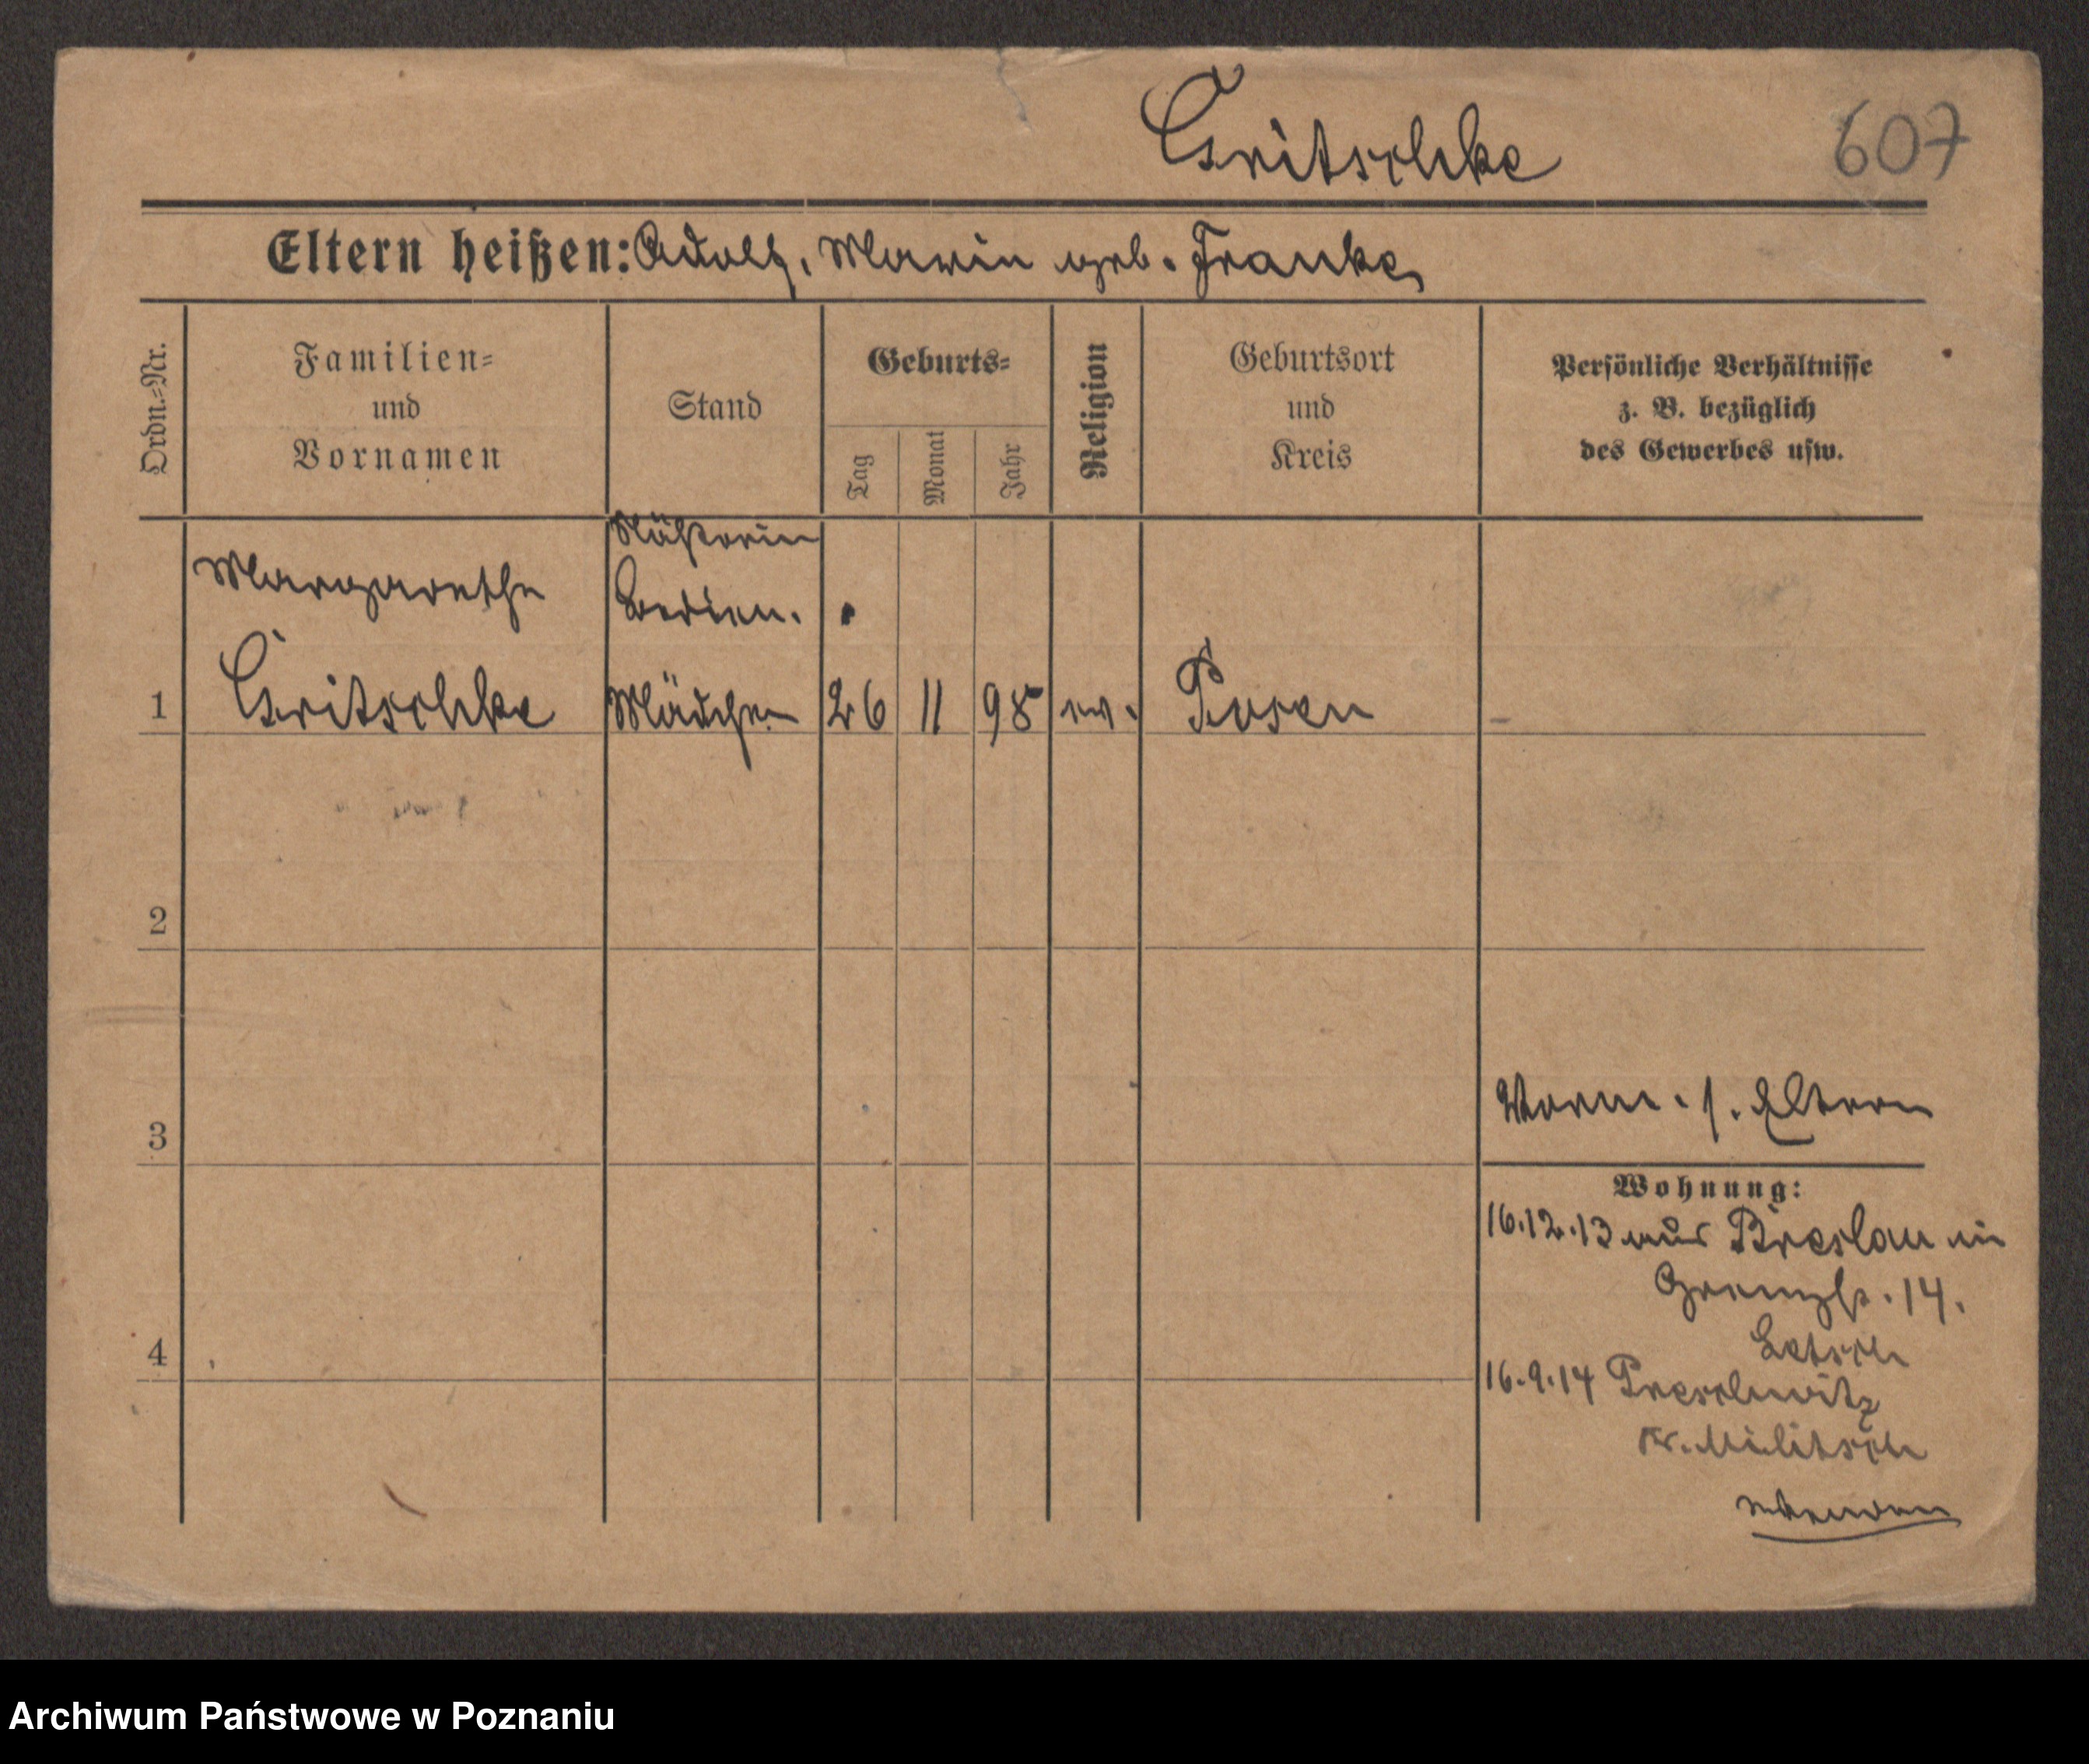 Gritschke
607
Eltern heißen: Adolf, Marie geb. Franke
Ordn.-Nr.
Familien- und Vornamen
Stand
Geburts-
Tag
Monat
Jahr
Religion
Geburtsort und Kreis
Persönliche Verhältnisse z. B. bezüglich des Gewerbes usw.
Margarethe
Bedien.
1 Gritschke Mädchen 26 11 98 ev. Posen
2
3
Vorm. s. Eltern
Wohnung:
16.12.13 aus Breslau in
Grenzstr. 14.
4
16.9.14
Kr. Militsch
Archiwum Państwowe w Poznaniu